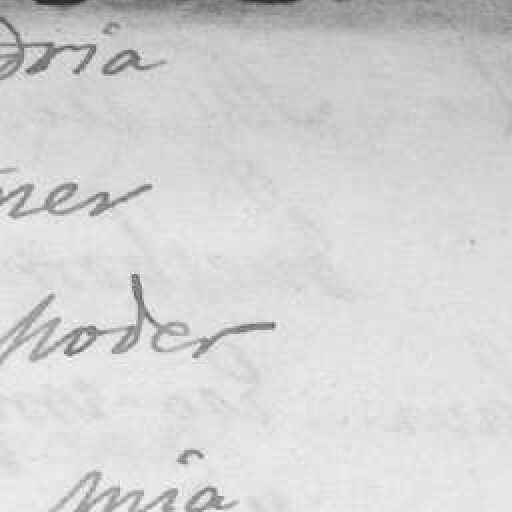 dria
ner
poder
mia